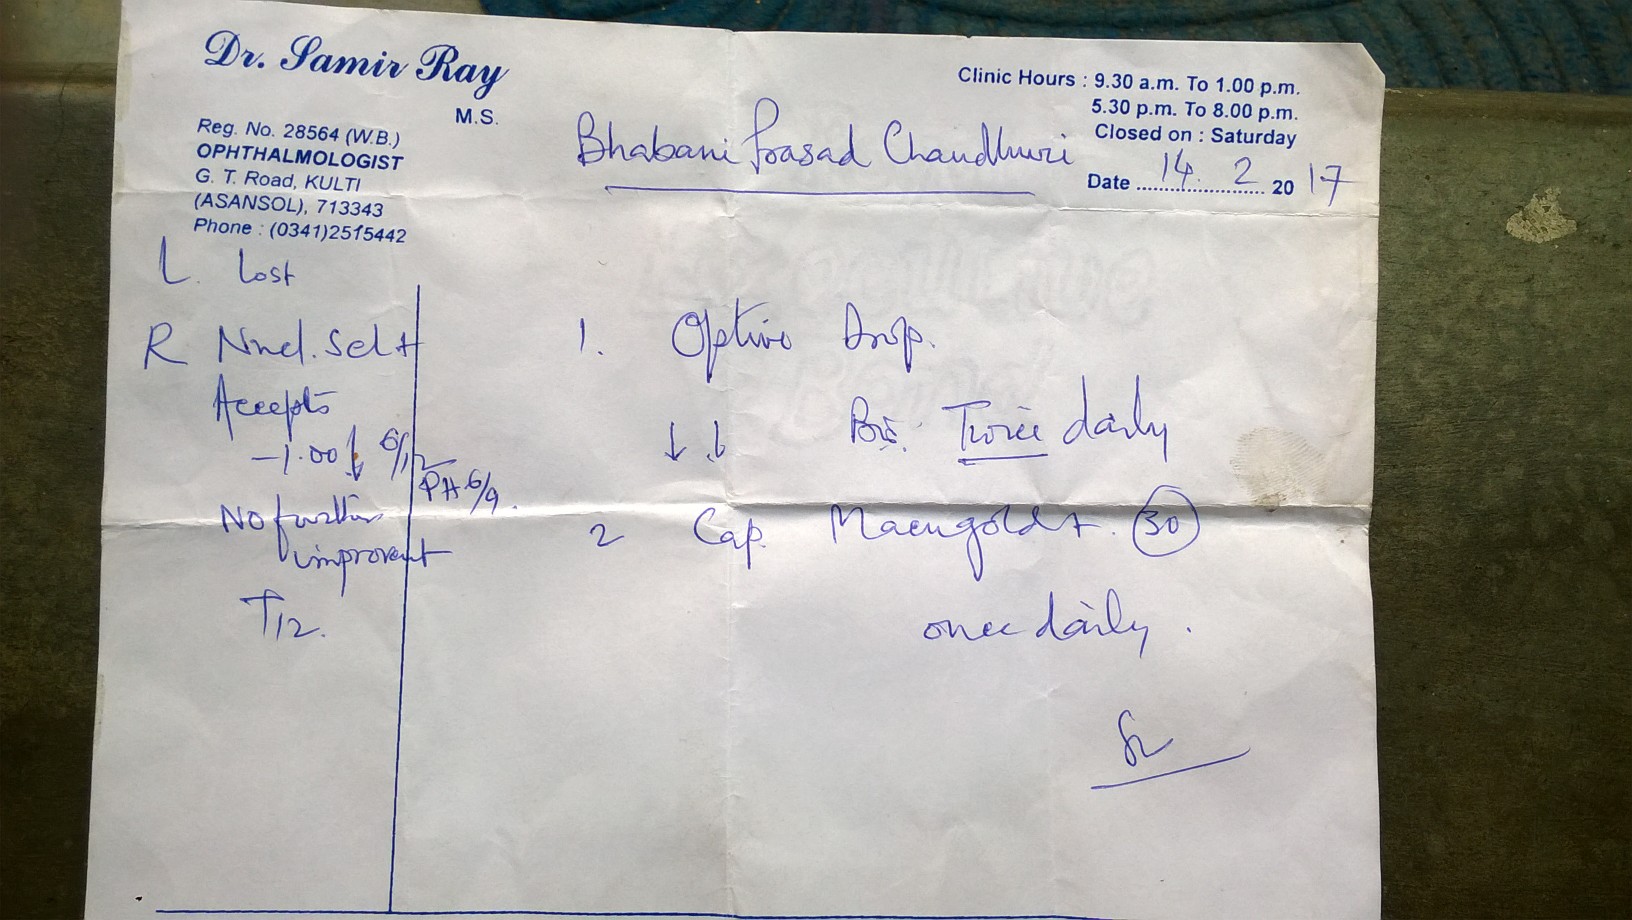 Dr. Samir Ray
M.S.
Reg. No. 28564 (W.B.)
OPHTHALMOLOGIST
G. T. Road, KULTI
(ASANSOL), 713343
Phone : (0341)2515442
Clinic Hours : 9.30 a.m. To 1.00 p.m.
5.30 p.m. To 8.00 p.m.
Closed on : Saturday
Date 14. 2 20 17
Bhabani Prasad Chaudhuri
L. Lost
R Nucl. Scl +
Accepts
-1.00 ↓ 6/12
PH 6/9.
No further
improvent
T12.
1. Optive Drop.
↓ ↓ Twice daily
2 Cap. (30)
once daily.